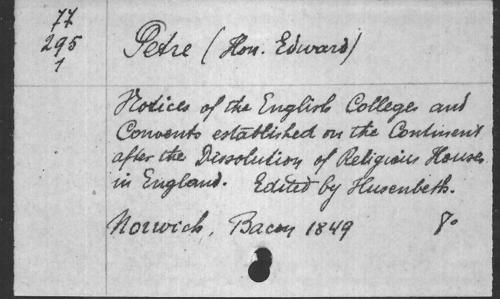 77
295
1
Petre (Hon. Edward)
Notices of the English Colleges and
Convents established on the Continent
after the Dissolution of Religious Houses
in England. Edited by Husenbeth.
Norwich, Bacon 1849 8°